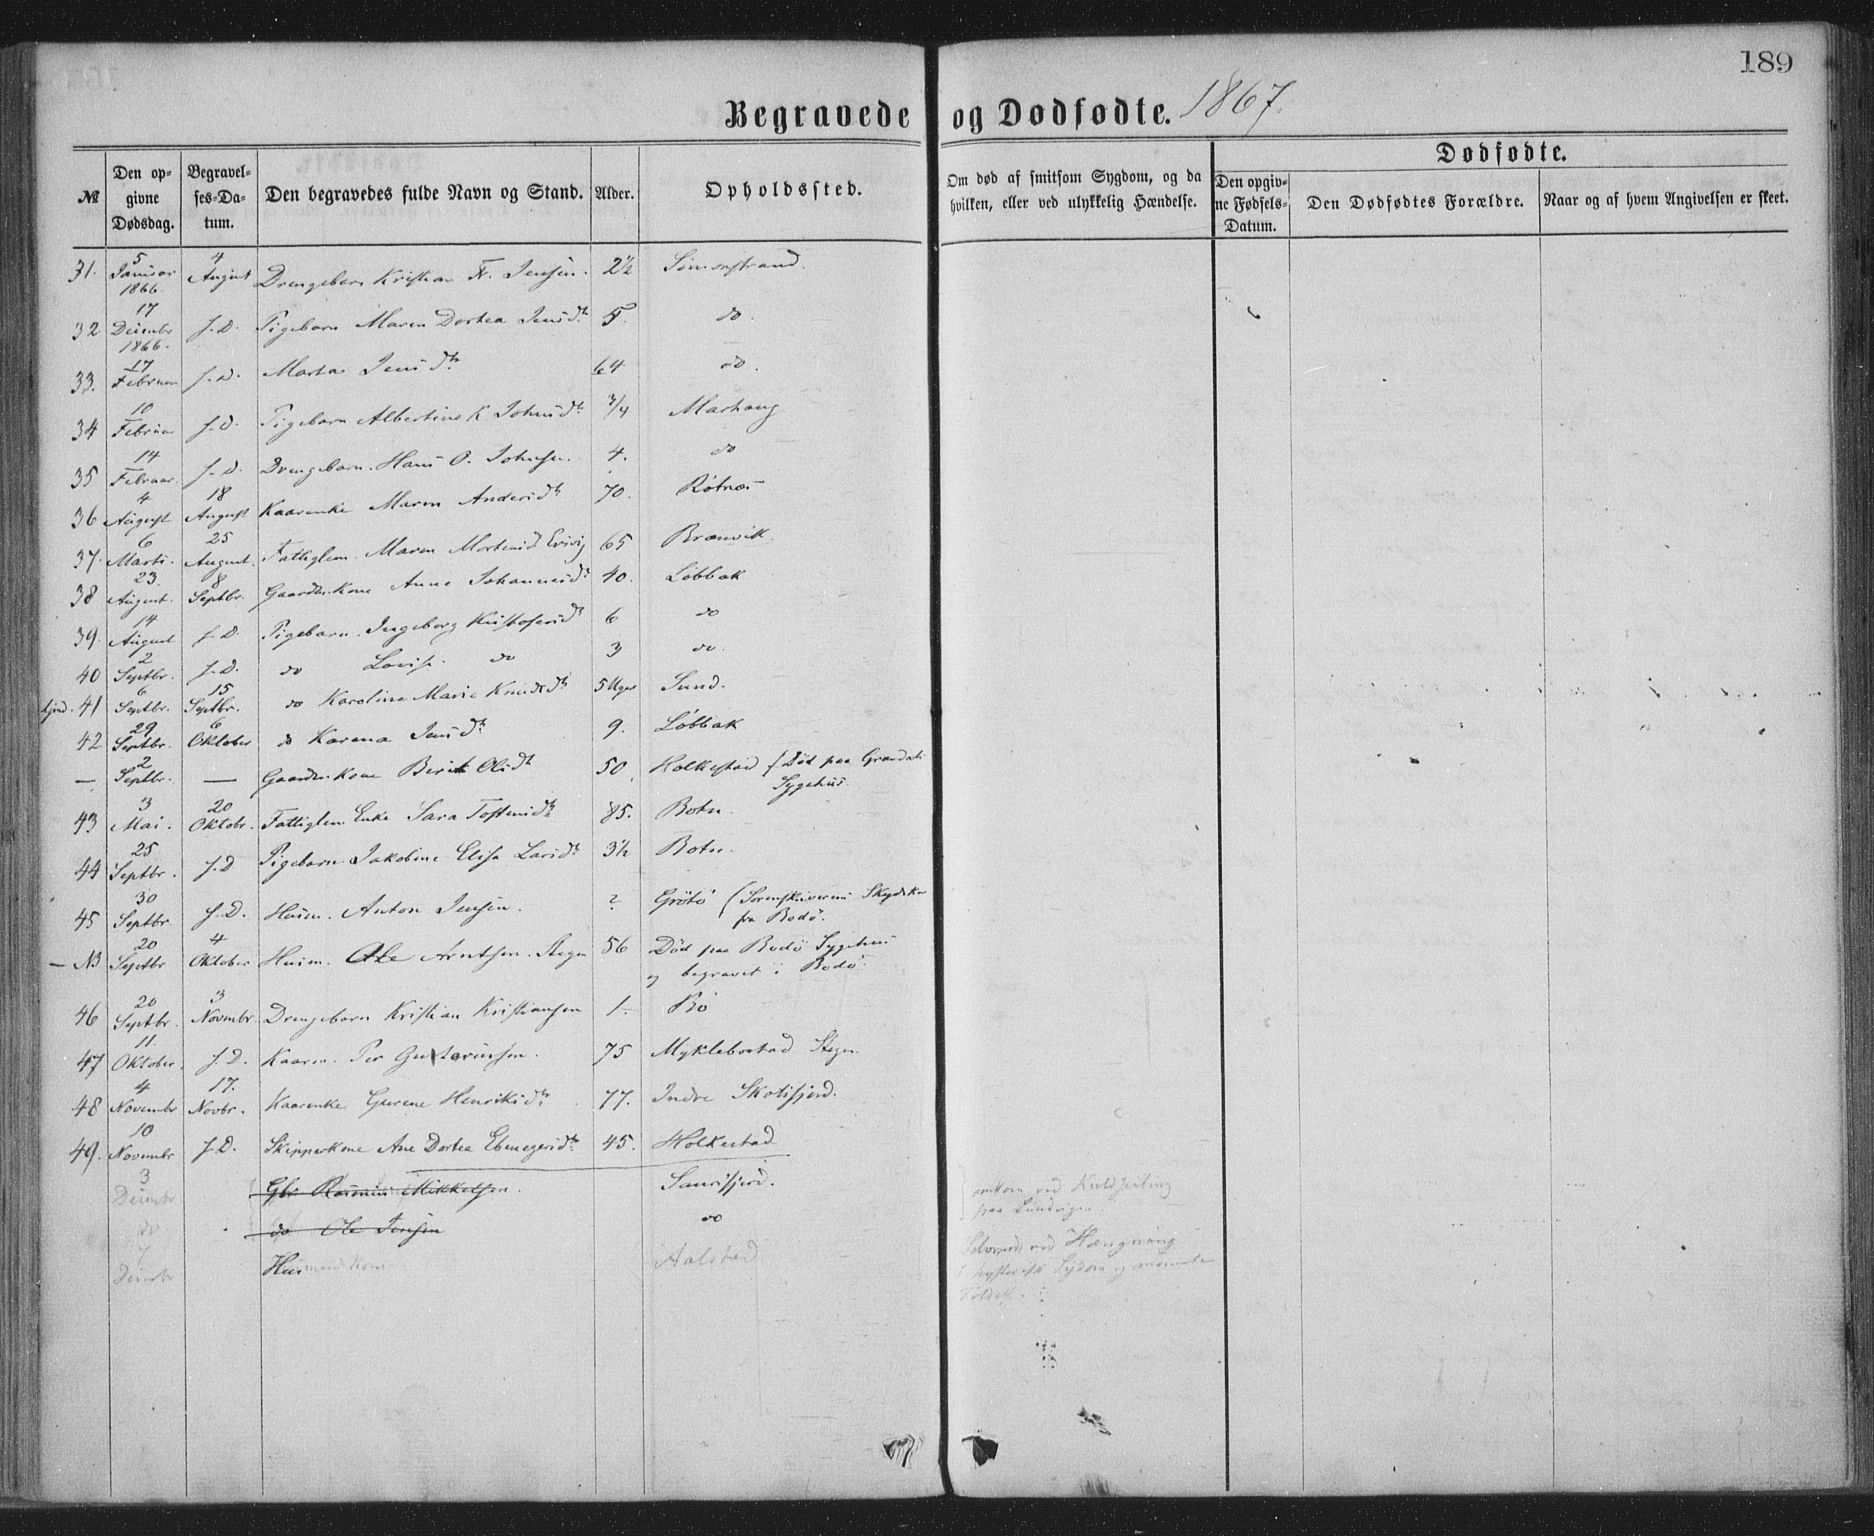 189
Begravede og Dødfødte. 1867.
Dødfødte.
№ Den opgivne Dødsdag. Begravelses-Datum. Den begravedes fulde Navn og Stand. Alder. Opholdssted. Om død af smitsom Sygdom, og da hvilken, eller ved ulykkelig Hændelse. Den opgivne Fødsels-Datum. Den Dødfødtes Forældre. Naar og af hvem Angivelsen er skeet.
31. 5 Januar 1866. 4 August Drengebarn Kristian Fr. Jensen. 2½
32 17 Decembr 1866. J. D. Pigebarn Maren Dortea Jensdtr 5. do.
33. 17 Februar J. D. Marta Jensdtr 64 do.
34 10 Februar J. D. Pigebarn Albertine K Johnsdtr 3/4 Marhaug
35 14 Februar. J. D. Drengebarn. Hans O. Johnsen. 4. do
36 4 August 18 August Kaarenke Maren Andersdtr 70. Røtnæs
37. 6 Marts. 25 August. Fattiglem. Maren Mortensd 65 Brænvik.
38 23. August. 8 Septbr. Gaardm.kone Anne Johannesdtr 40. Løbbak
39. 14 August J. D. Pigebarn. Ingeborg Kristofersdtr 6 do
40 2 Septbr. J. D. do Lovise. do 3 do.
41 6 Septbr. 15 Septbr. do Karoline Marie Knudsdtr 5 Uger Sund.
42 29 Septbr. 6 Oktober do Karena Jensdtr 9. Løbbak
— 2 Septbr. — Gaardm.kone Berit Olsdtr 50. Holkestad (Død paa
Sygehus.
43 3 Mai. 20 Oktobr. Fattiglem Enke Sara Tostensdtr 85. Botn.
44 25 Septbr. J. D Pigebarn Jakobine Elisa Larsdtr 3½ Botn.
45 30 Septbr J. D. Husm. Anton Jensen. ? Grøtø (Sorenskriverens
fra Bodø.
— NB 20 Septbr 4 Oktober Husm. Ole Arntsen. Stegen 56 Død paa Bodø Sygehus
og begravet i Bodø.
46 20 Septbr. 3 Novembr. Drengebarn Kristian Kristiansen 1. Bø
47 11. Oktober. J. D. Kaarm. Per 75 Myklebostad Stegen
48 4 Novembr 17. Novbr. Kaarenke Gurene Henriksdtr 77. Indre Skotsfjord.
49. 10 Novembr J. D. Skipperkone Ane Dortea Ebenezersdtr 45. Holkestad
3 Decembr. Gbr Rasmus Mikkelsen.
omkom ved Kuldseiling
paa
do do Ole Jensen do
7 Decembr Husmandskone Aalstad
ved Hængning